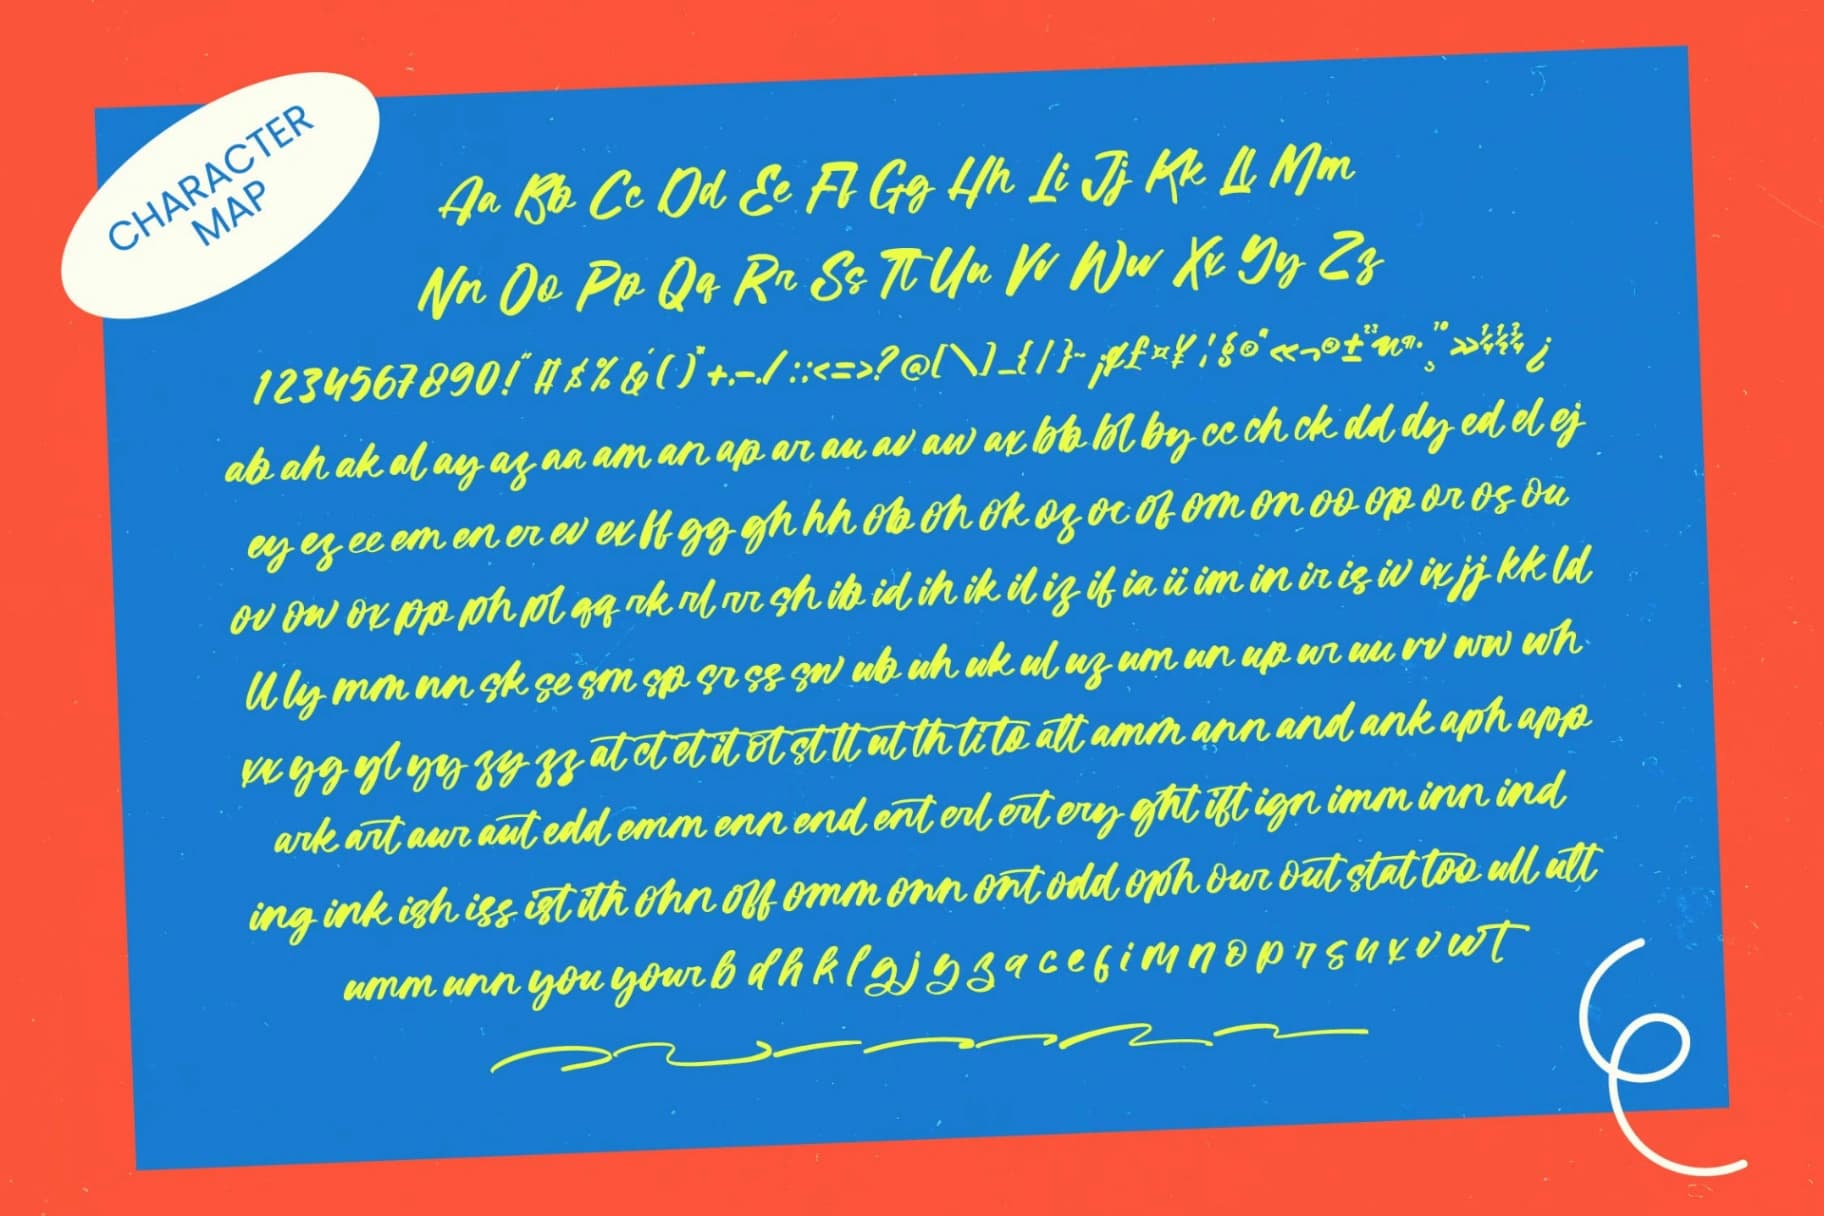 CHARACTER
MAP
Aa Bb Cc Dd Ee Ff Gg Hh Ii Jj Kk Ll Mm
Nn Oo Pp Qq Rr Ss Tt Uu Vv Ww Xx Yy Zz
1234567890!"#$%&'()*+,-./:;<=>?@[\]_{|}~¡¢£¤¥¦§©ª«¬®±²³µ¶·¸¹º»¼½¾¿
ab ah ak al ay az aa am an ap ar au av aw ax bb bl by cc ch ck dd dy ed el ej
ey ez ee em en er ev ex ff gg gh hh ob oh ok oz oc of om on oo op or os ou
ov ow ox pp ph pl qq rk rl rr sh ib id ih ik il iz if ia ii im in ir is iv ix jj kk ld
ll ly mm nn sk se sm sp sr ss sw ub uh uk ul uz um un up ur uu vv ww wh
xx yg yl yy zy zz at ct et it ot st tt ut th ti to att amm ann and ank aph app
ark art aur aut edd emm enn end ent erl ert ery ght ift ign imm inn ind
ing ink ish iss ist ith ohn off omm onn ont odd oph our out stat too ull utt
umm unn you your b d h k l g j y z a c e f i m n o p r s u x v w t